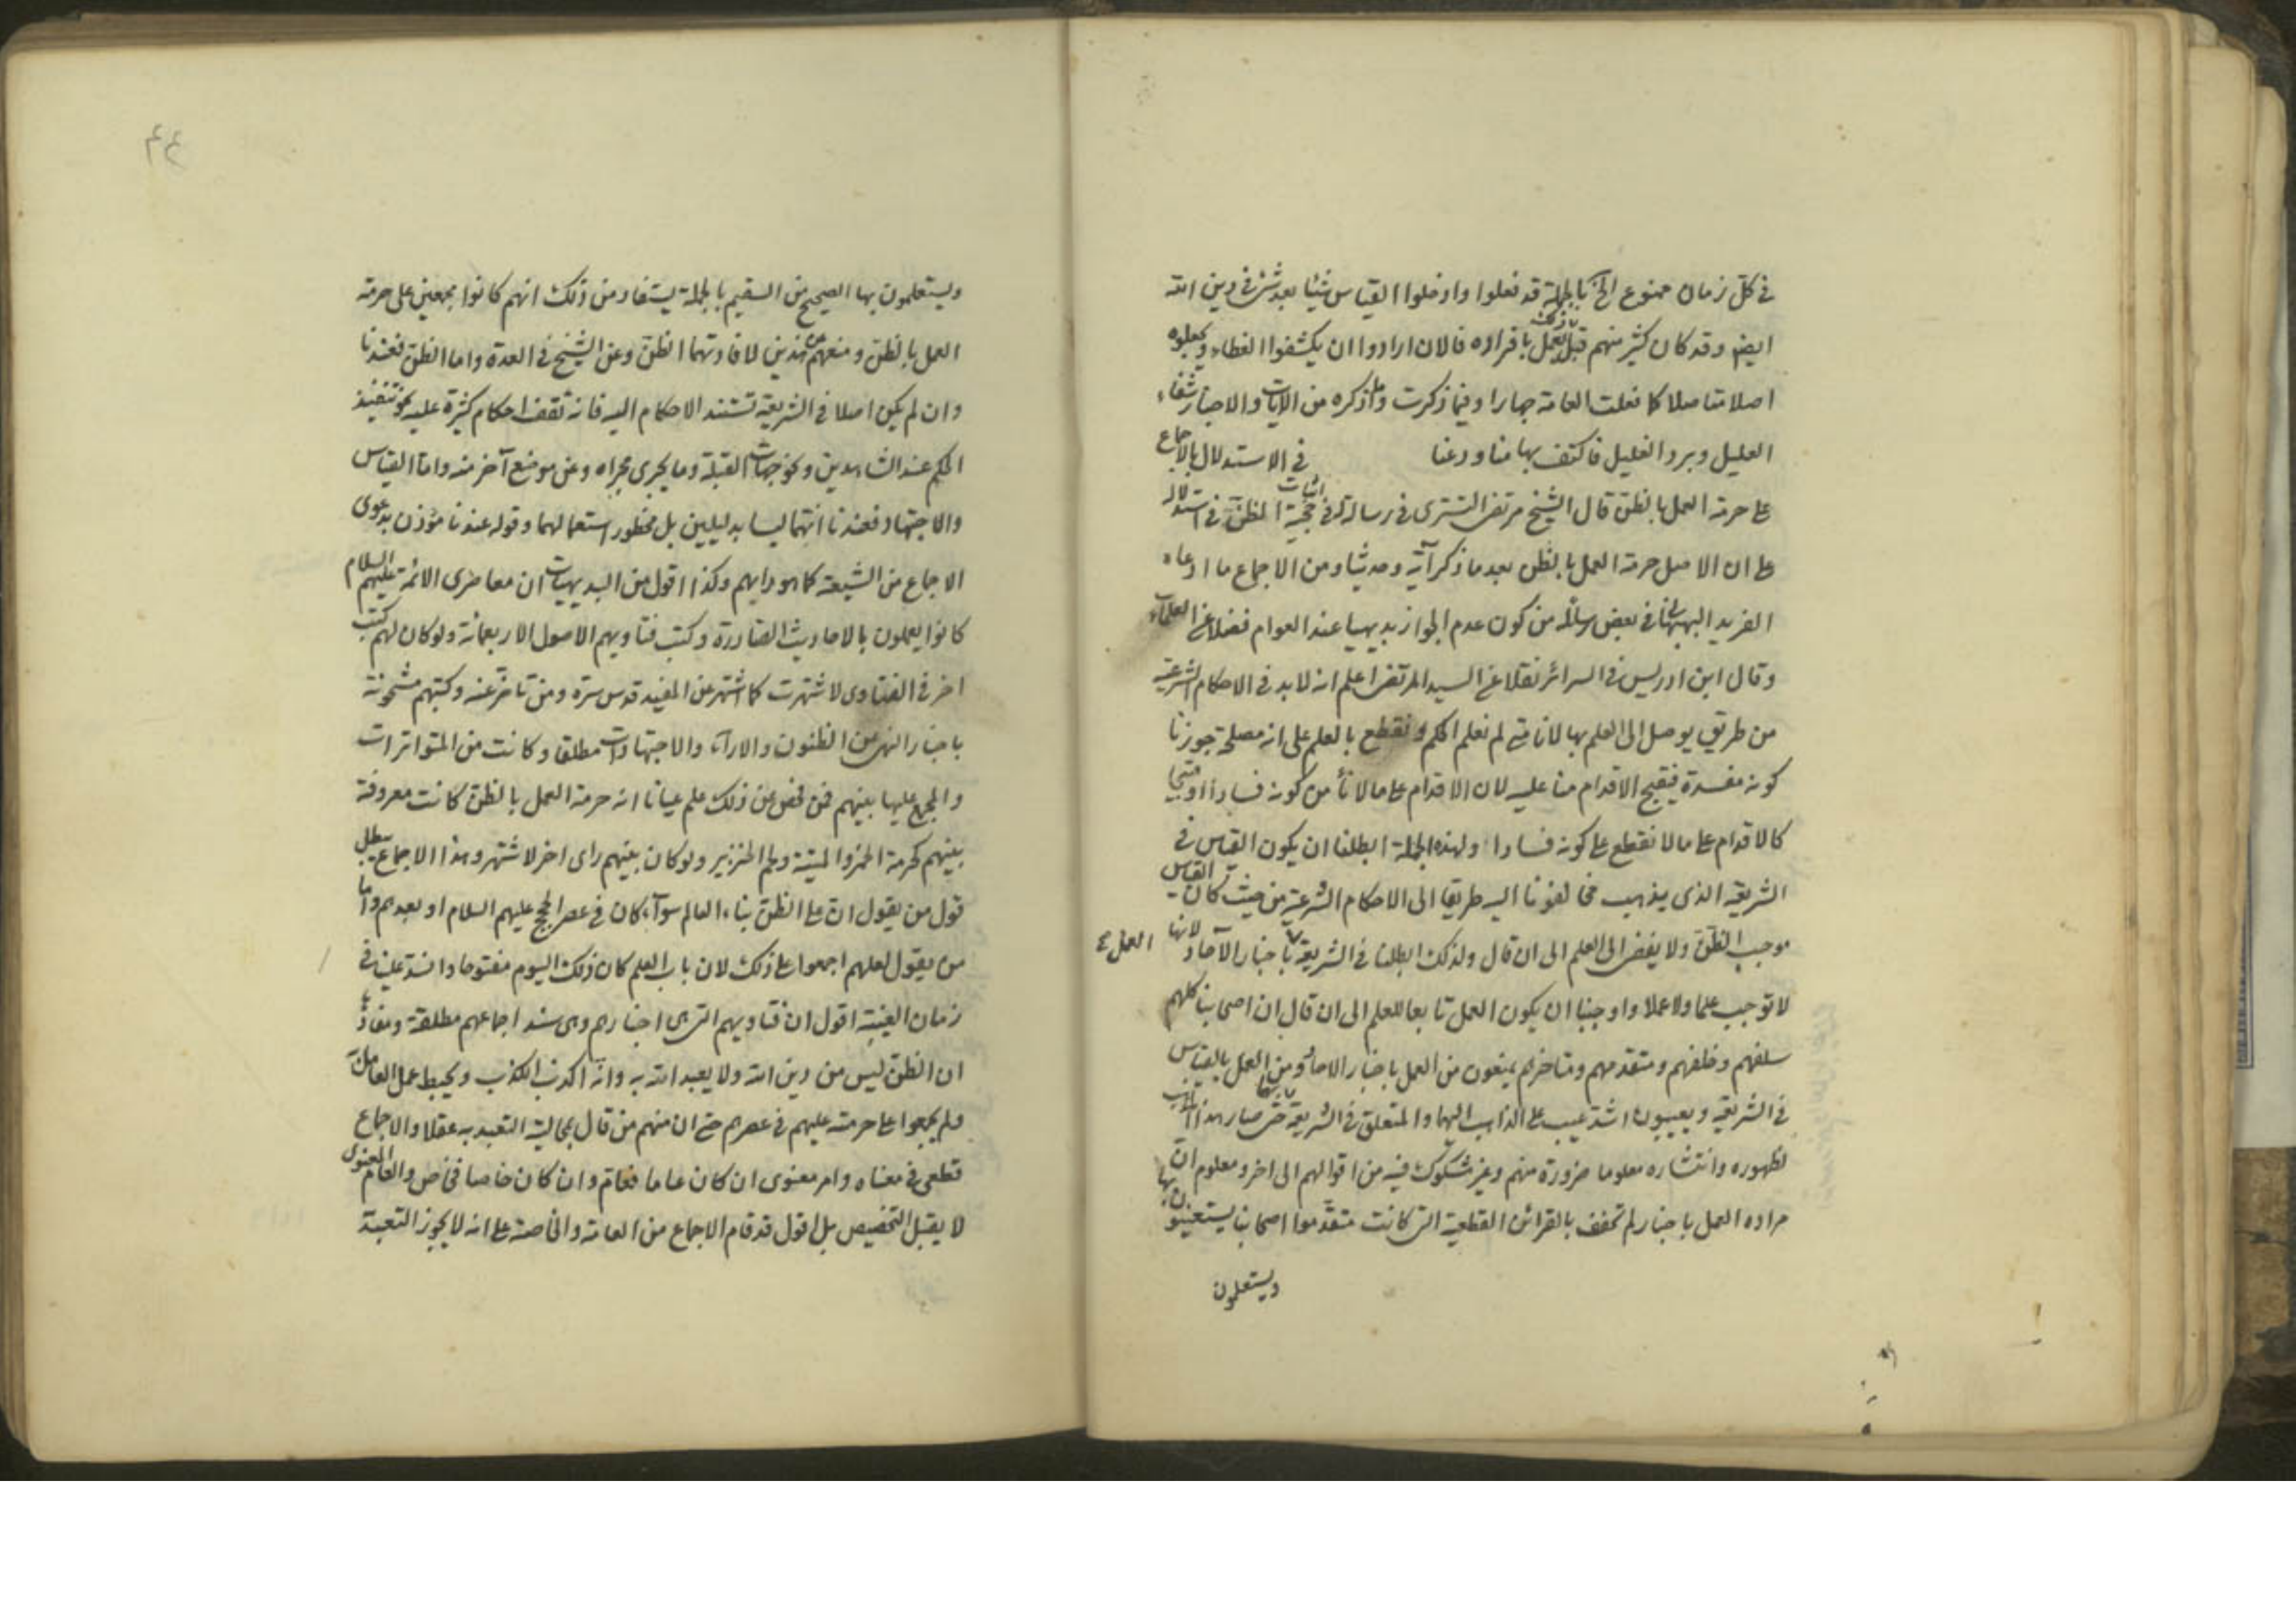 في كل زمان ممنوع الخ بالجملة قد فعلوا وادخلوا القياس شيئا بعد شئ في دين الله
ايضا وقد كان كثير منهم قبل يعمل بافراده فالان ارادوا ان يكشفوا الغطاء ويجعلوه
اصلا متاصلا كما فعلت العامة جهارا وفيما ذكرت وما اذكره من الايات والاخبار شفاء
العليل وبرد الغليل فاكتف بها منا ودعنا في الاستدلال بالاجماع
على حرمة العمل بالظن قال الشيخ مرتضى التستري في رسالته في اثبات حجية المظنة في استدلاله
على ان الاصل حرمة العمل بالظن بعد ما ذكر آية وحديثا ومن الاجماع ما ادعاه
الفريد البهبهاني في بعض رسائله من كون عدم الجواز بديهيا عند العوام فضلا عن العلماء
وقال ابن ادريس في السرائر نقلا عن السيد المرتضى اعلم انه لا بد في الاحكام الشرعية
من طريق يوصل الى العلم بها لانا متى لم نعلم الحكم ونقطع بالعلم على انه مصلحة جوزنا
كونه مفسدة فيقبح الاقدام منا عليه لان الاقدام على ما لا نأمن كونه فسادا او قبيحا
كالاقدام على ما لا نقطع على كونه فسادا ولهذه الجملة ابطلنا ان يكون القياس في
الشريعة الذي يذهب مخالفونا اليه طريقا الى الاحكام الشرعية من حيث كان القياس
موجب الظن ولا يفضي الى العلم الى ان قال ولذلك ابطلنا في الشريعة العمل باخبار الآحاد لانها
لا توجب علما ولا عملا واوجبنا ان يكون العمل تابعا للعلم الى ان قال ان اصحابنا كلهم
سلفهم وخلفهم ومتقدمهم ومتاخرهم يمنعون من العمل باخبار الاحاد ومن العمل بالقياس
في الشريعة ويعيبون اشد عيب على الذاهب اليهما والمتعلق في الشريعة بهما حتى صار هذا المذهب
لظهوره وانتشاره معلوما ضرورة منهم وغير مشكوك فيه من اقوالهم الى اخر ومعلوم ان
مراده العمل باخبار لم تحفف بالقرائن القطعية التي كانت متقدموا اصحابنا يستعينون بها
ويستعلمون
٤٤
ويستعلمون بها الصحيح من السقيم بالجملة يستفاد من ذلك انهم كانوا مجمعين على حرمة
العمل بالظن ومنعهم عن هذين لافادتهما الظن وعن الشيخ في العدة واما الظن فعندنا
وان لم يكن اصلا في الشريعة تستند الاحكام اليه فانه تقف احكام كثيرة عليه نحو تنفيذ
الحكم عند الشاهدين ونحو جهات القبلة وما يجري مجراه وعن موضع آخر منه واما القياس
والاجتهاد فعندنا انهما ليسا بدليلين بل محظور استعمالهما وقوله عندنا مؤذن بدعوى
الاجماع من الشيعة كما هو دابهم وكذا اقول من البديهيات ان معاصري الائمة عليهم السلام
كانوا يعملون بالاحاديث الصادرة وكتب فتاويهم الاصول الاربعمائة ولو كان لهم كتب
اخر في الفتاوى لاشتهرت كما اشتهر عن المفيد قدس سره ومن تاخر عنه وكتبهم مشحونة
باخبار النهي عن الظنون والاراء والاجتهادات مطلقا وكانت من المتواترات
والمجمع عليها بينهم فمن فحص عن ذلك علم عيانا انه حرمة العمل بالظن كانت معروفة
بينهم كحرمة الخمر والميتة ولحم الخنزير ولو كان بينهم راى اخر لاشتهر وهذا الاجماع يبطل
قول من يقول ان على الظن بناء العالم سواء كان في عصر الحجج عليهم السلام او بعدهم واما
من يقول لعلهم اجمعوا على ذلك لان باب العلم كان ذلك اليوم مفتوحا وانسد علينا في
زمان الغيبة اقول ان فتاويهم التي هي اخبارهم وهي سند اجماعهم مطلقة ومفادها
ان الظن ليس من دين الله ولا يعبد الله به وانه اكذب الكذب ويحبط عمل العامل به
ولم يجمعوا على حرمته عليهم في عصرهم حتى ان منهم من قال بمحالية التعبد به عقلا والاجماع
قطعي في معناه وامر معنوي ان كان عاما فعام وان كان خاصا فخاص والعام المعنوي
لا يقبل التخصيص بل اقول قد قام الاجماع من العامة والخاصة على انه لا يجوز التعبد